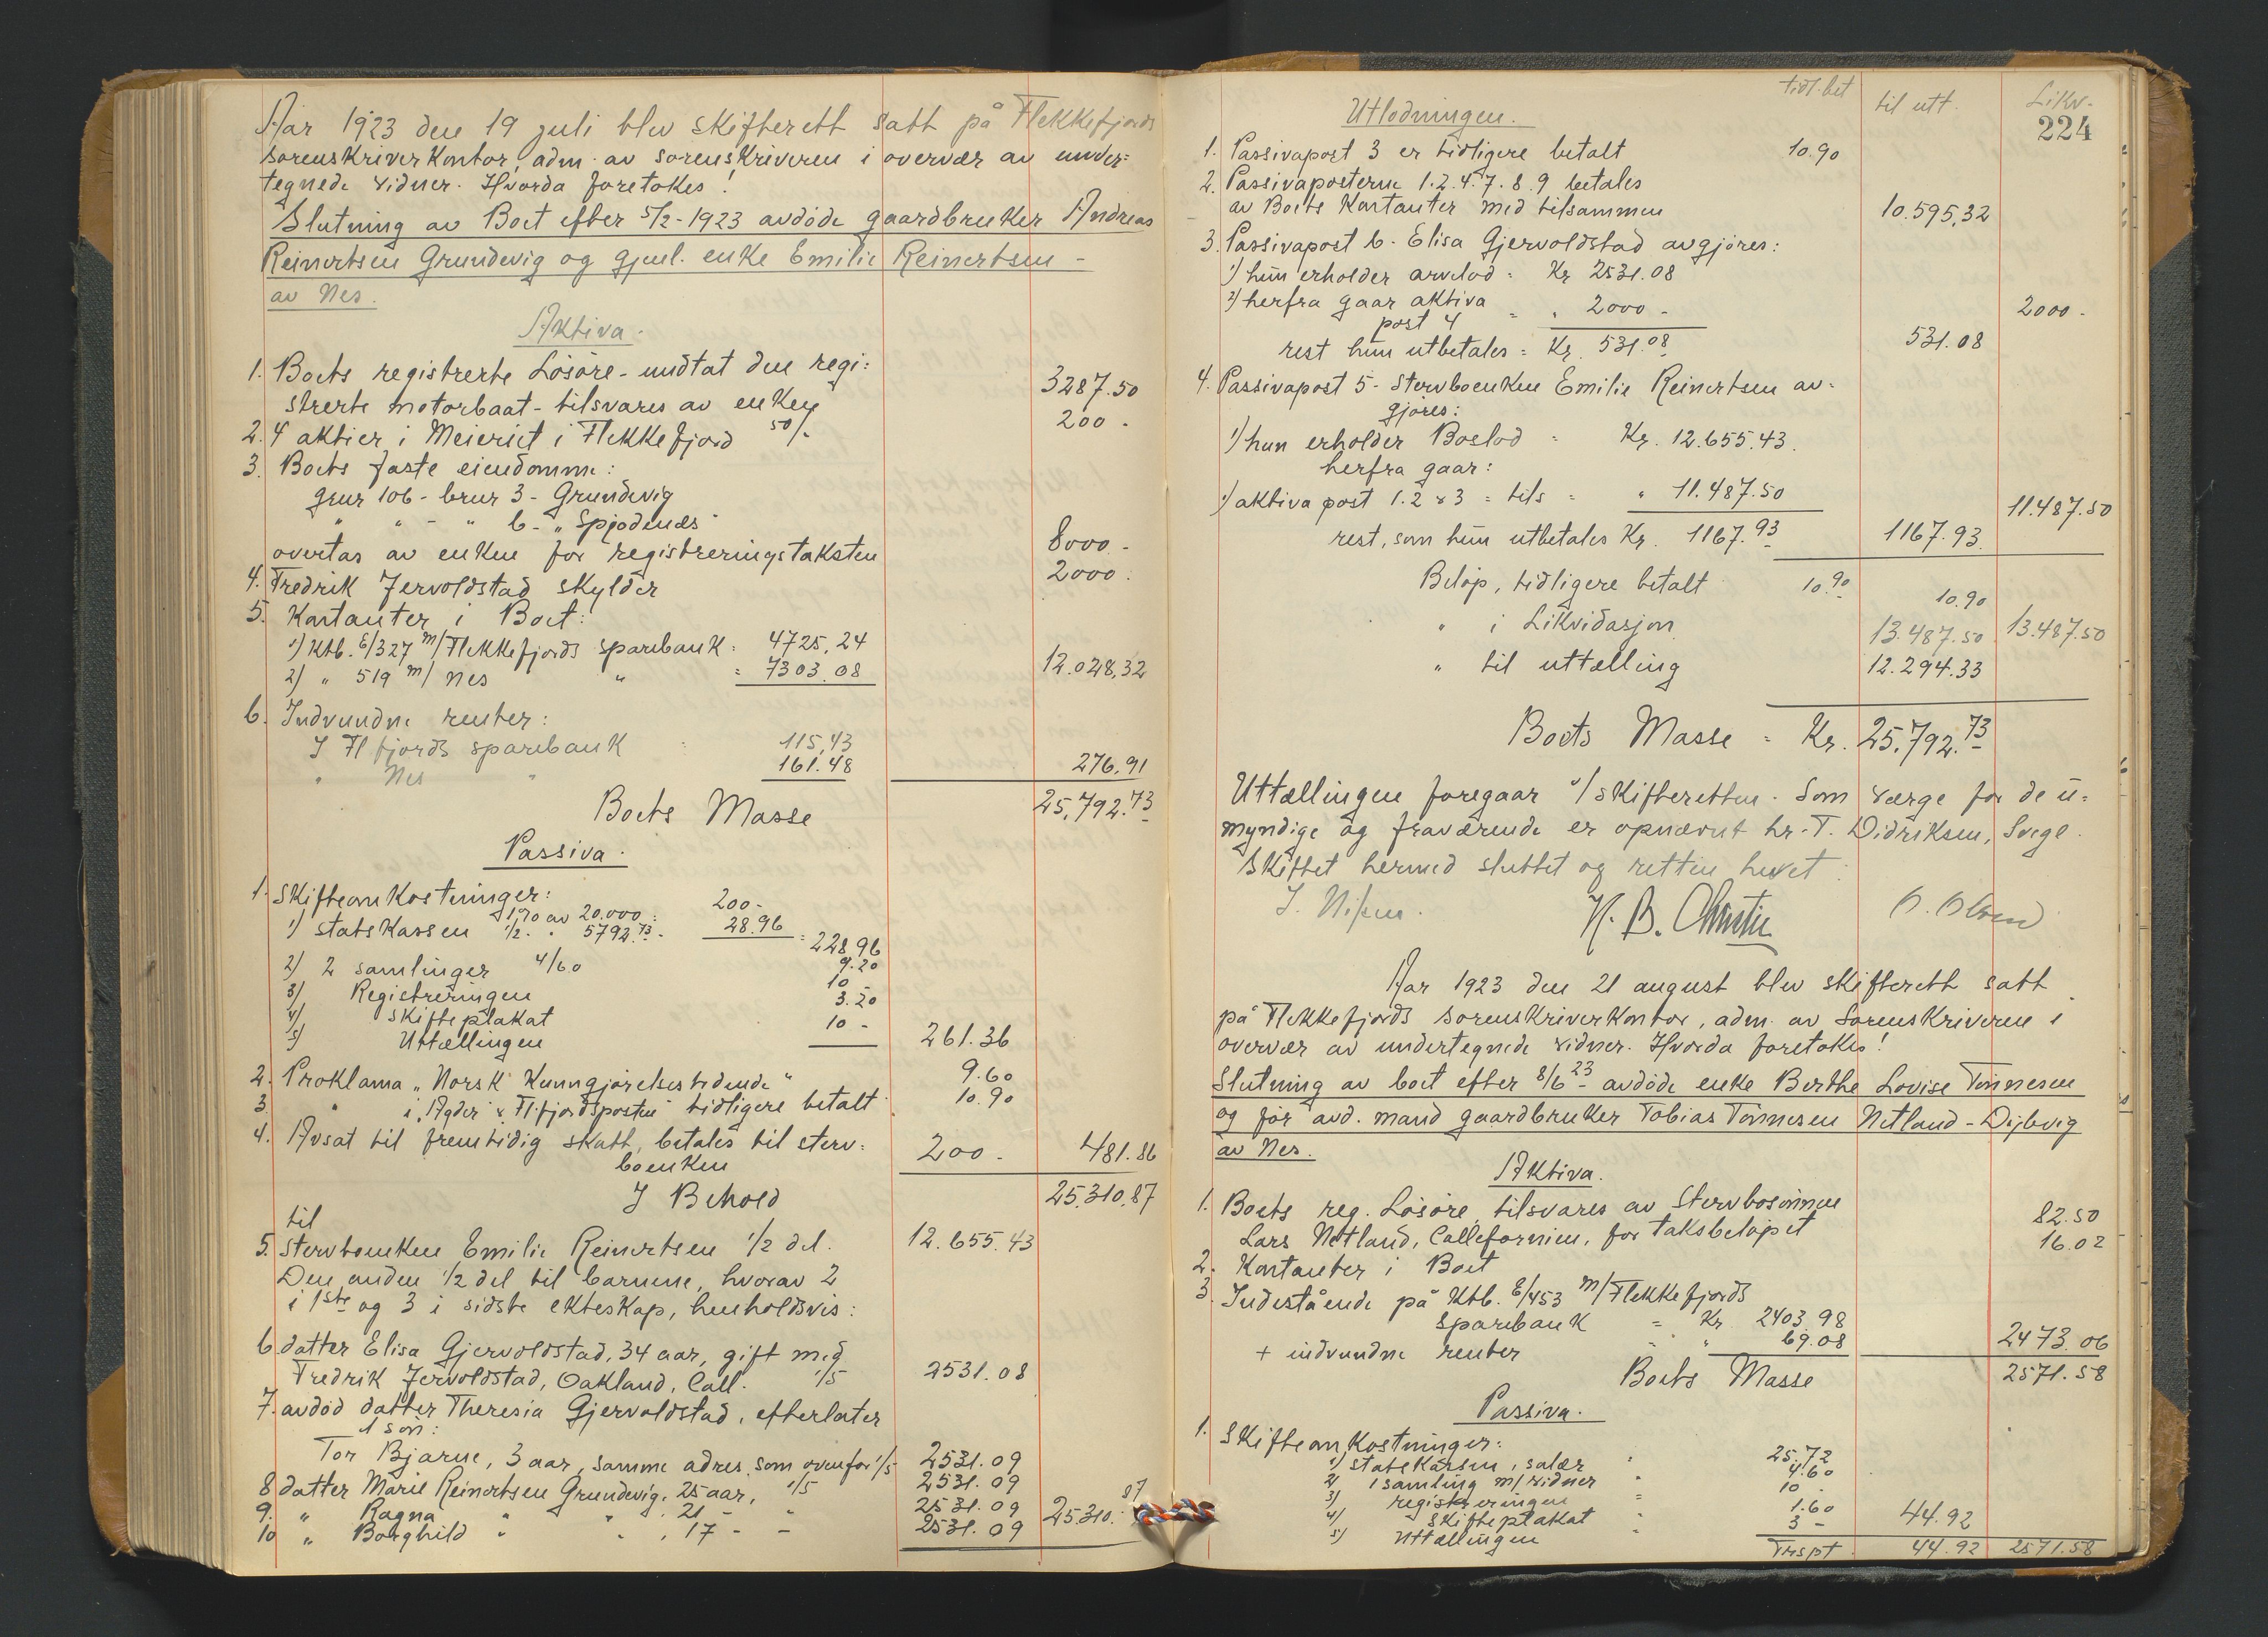 Aar 1923 den 19 juli blev skifterett satt på Flekkefjords
sorenskriverkontor, adm. av sorenskriveren i overvær av under=
tegnede vidner. Hvorda foretokes!
Slutning av Boet efter 5/2-1923 avdöde gaardbruker Andreas
Reinertsen Grundevig og gjenl. enke Emilie Reinertsen -
av Nes.
Aktiva.
1. Boets registrerte Lösöre - undtat den regi=
strerte motorbaat - tilsvares av enken 3287.50
2. 4 aktier i Meieriet i Flekkefjord 50/- 200 -
3. Boets faste eiendomme:
gnr 106 - brnr 3 - Grundevig
" " - " 6 - "Spjodenes"
overtas av enken for registreringstaksten 8000 -
4. Fredrik Jervoldstad skylder 2000.
5. Kontanter i Boet:
1) Ktb. E/327 m/Flekkefjords sparebank = 4725,24
2) " 519 m/ Nes " = 7303.08 12.028,32
6. Indvundne renter:
I Flfjords sparebank = 115,43
" Nes " 161.48 276,91
Boets Masse 25.792.73
Passiva.
1. Skifteomkostninger:
1) statskassen 1% av 20.000 = 200 -
1/2 - " 5792.73 - 28.96 = 228.96
2) 2 samlinger 4/60 9.20
3) Registreringen 10 -
4) Skifteplakat 3.20
5) Uttællingen 10 - 261.36
2. Proklama "Norsk Kunngjörelsestidende" 9.60
3. " i "Agder" & Flfjordsposten tidligere betalt 10.90
4. Avsat til fremtidig skatt, betales til sterv=
boenken 200 - 481.86
I Behold 25.310,87
til
5. Stervboenken Emilie Reinertsen 1/2 del. 12.655.43
Den anden 1/2 del til barnene, hvorav 2
i 1ste og 3 i sidste ekteskap, henholdsvis:
6 datter Elisa Gjervoldstad, 34 aar, gift med
Fredrik Jervoldstad, Oakland, Call. 1/5 2531.08
7. avdöd datter Theresia Gjervoldstad, efterlater
1 sön:
Tor Bjarne, 3 aar, samme adres. som ovenfor 1/5 2531.09
8 datter Marie Reinertsen Grundevig. 25 aar, 1/5 2531.09
9. " Ragna " " , 21 - " 2531.09
10 " Borghild " " , 17 - - 2531.09 25310.87
224
tidl. bet til utt. Likv.
Utlodningen.
1. Passivapost 3 er tidligere betalt 10.90
2. Passivaposterne 1.2.4.7.8.9 betales
av Boets Kontanter med tilsammen 10.595,32
3. Passivapost 6. Elisa Gjervoldstad avgjöres:
1) hun erholder arvelod = Kr 2531.08
2) herfra gaar aktiva
post 4 = " 2000 - 2000 -
rest hun utbetales = Kr. 531.08 531.08
4. Passivapost 5 - Stervboenken Emilie Reinertsen av=
gjöres:
1) hun erholder Boslod = Kr. 12.655.43.
herfra gaar:
1) aktiva post 1.2 & 3 = tils = " 11.487.50 11.487.50
rest, som hun utbetales Kr. 1167.93 1167.93
Belöp, tidligere betalt 10.90 10.90
" i Likvidasjon 13.487.50 13.487.50
" til uttælling 12.294.33
Boets Masse = Kr. 25.792.73
Uttællingen foregaar v/ skifteretten. Som værge for de u=
myndige og fraværende er opnævnt hr. T. Didriksen, Svege.
Skiftet hermed sluttet og retten hevet.
H. B. Christie
Aar 1923 den 21 august blev skifterett satt
på Flekkefjords sorenskriverkontor, adm. av Sorenskriveren i
overvær av undertegnede vidner. Hvorda foretokes!
Slutning av boet efter 8/6 23 avdöde enke Berthe Lovise Tönnesen
og för avd. mand gaardbruker Tobias Tönnesen Netland - Dybvig
av Nes.
Aktiva.
1. Boets reg. Lösöre tilsvares av Stervbosönnen
Lars Netland, Callefornien, for taksbelöpet 82.50
2. Kontanter i Boet 16.02
3. Indestående på Ktb. E/453 m/Flekkefjords
sparebank = Kr 2403.98
+ indvundne renter = " 69.08 2473.06
Boets Masse 2571.58
Passiva.
1. Skifteomkostninger:
1) statskassen, salær " 25.72
2) 1 samling m/vidner " 4.60
3) registreringen = 10 -
4) Skifteplakat " 1.60
5) Uttællingen " 3 - 44.92
Trspt 44.92 2571.58